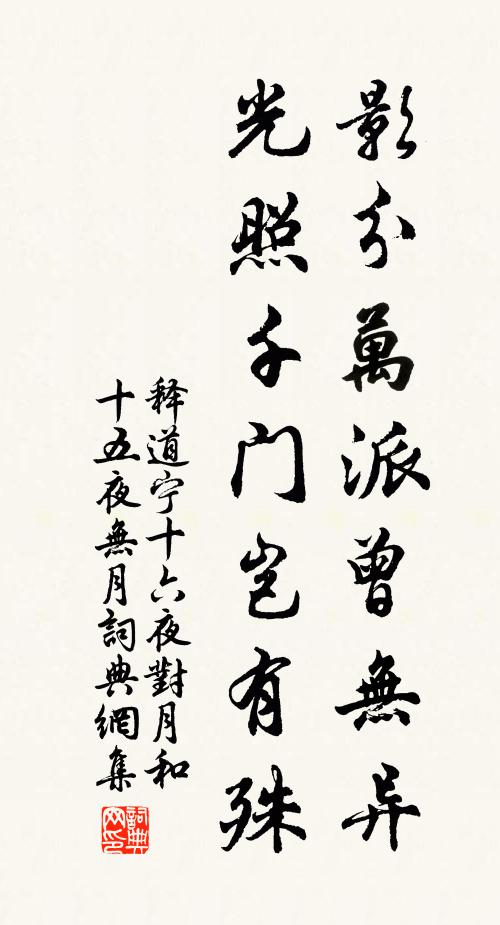 影分萬派曾無异
光照千门岂有殊
释道宁十六夜對月和
十五夜無月詞典網集
詞典
网印